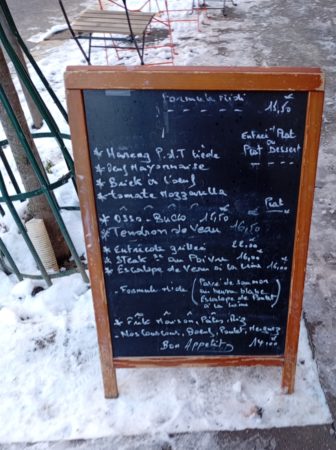 Formule Midi 18,50
Entrée + Plat
ou
Plat Dessert
* Hareng P.d.T tiède
* Oeuf Mayonnaise
* Brick à l'oeuf
* Tomate Mozzarella
Plat
* Osso-Bucco 16,50
* Tendron de Veau 16,50
* Entrecôte grillée 22,00
* Steak au Poivre 16,00
* Escalope de Veau à la crème 16,00
- Formule Midi (Pavé de saumon
au beurre blanc
Escalope de Poulet
à la crème
* Frites Maison, Pâtes, Riz
- Nos Couscous, Boeuf, Poulet, Merguez
Bon Appetit 14,00